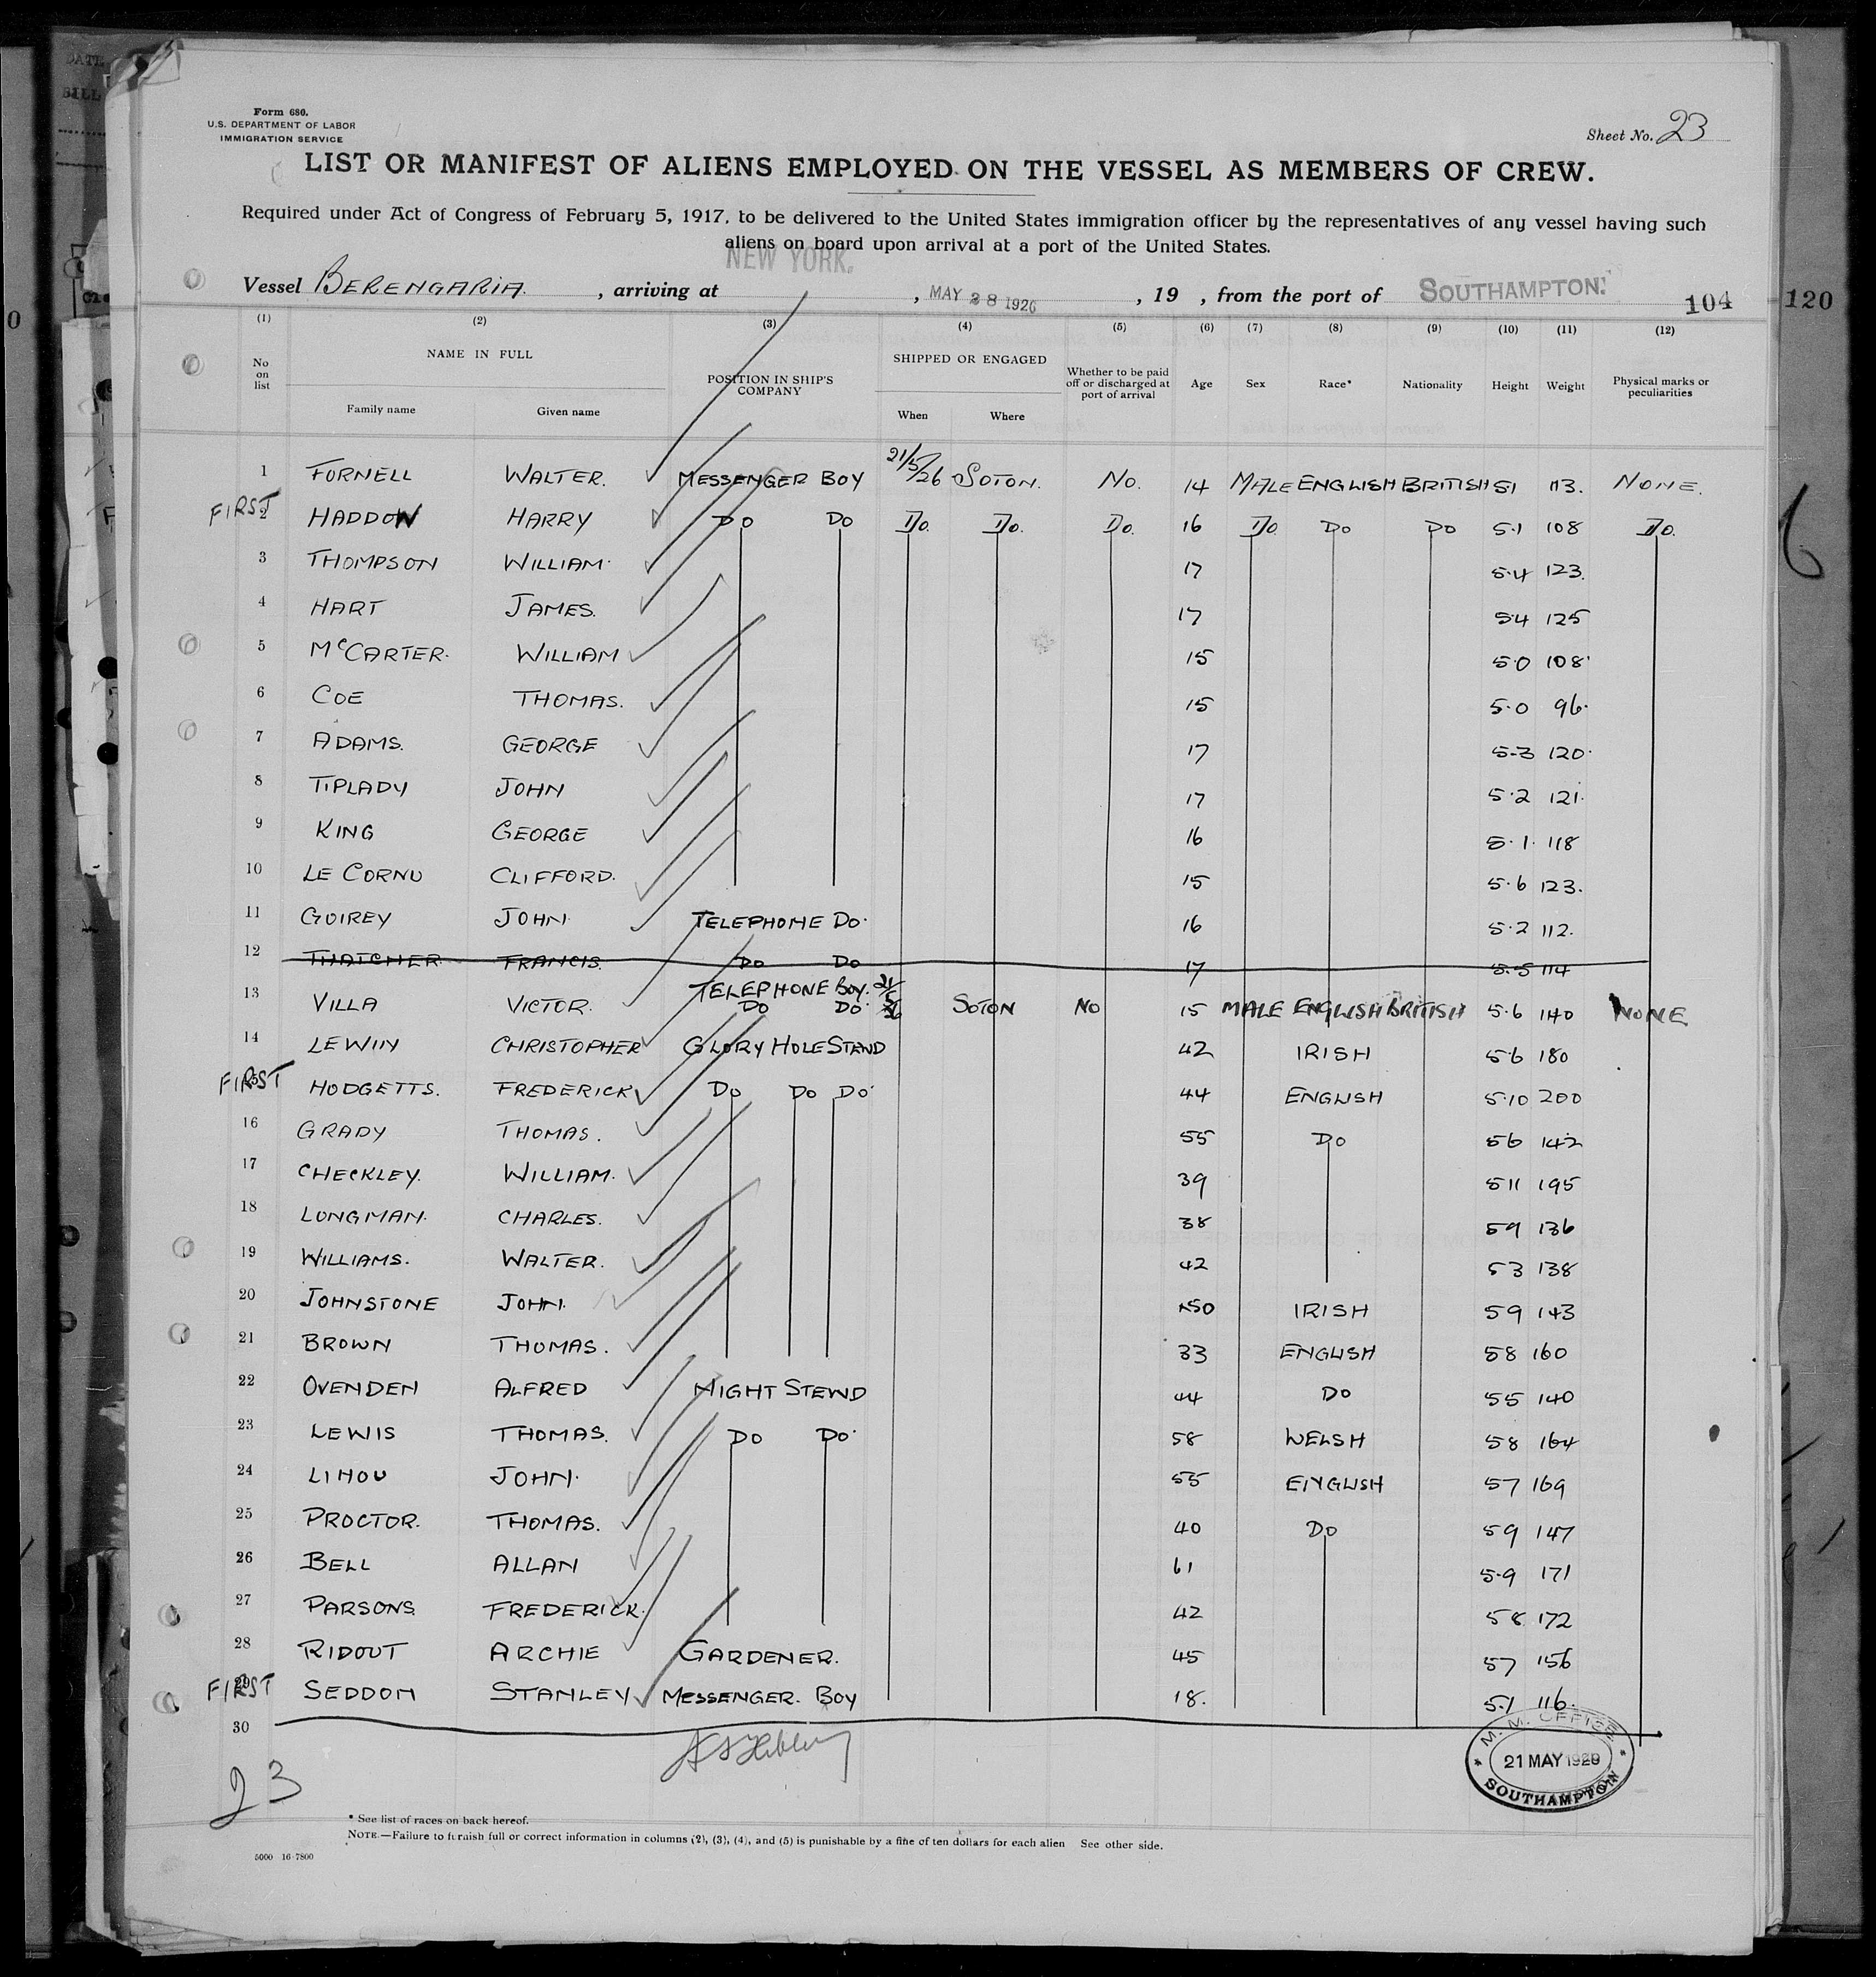 Form 680.
U.S. DEPARTMENT OF LABOR
IMMIGRATION SERVICE
Sheet No. 23
LIST OR MANIFEST OF ALIENS EMPLOYED ON THE VESSEL AS MEMBERS OF CREW.
Required under Act of Congress of February 5, 1917, to be delivered to the United States immigration officer by the representatives of any vessel having such
aliens on board upon arrival at a port of the United States.
NEW YORK.
Vessel BERENGARIA, arriving at , MAY 28 1926 , 19 , from the port of SOUTHAMPTON. 104
120
(1) (2) (3) (4) (5) (6) (7) (8) (9) (10) (11) (12)
No on list NAME IN FULL Family name Given name POSITION IN SHIP'S COMPANY SHIPPED OR ENGAGED When Where Whether to be paid off or discharged at port of arrival Age Sex Race* Nationality Height Weight Physical marks or peculiarities
1 FURNELL WALTER. MESSENGER BOY 21/5/26 SOTON. NO. 14 MALE ENGLISH BRITISH 51 113. NONE.
FIRST 2 HADDOW HARRY DO DO DO. DO. DO. 16 DO. DO DO 5.1 108 DO.
3 THOMPSON WILLIAM. 17 5.4 123.
4 HART JAMES. 17 54 125
5 McCARTER. WILLIAM 15 5.0 108.
6 COE THOMAS. 15 5.0 96.
7 ADAMS. GEORGE 17 5-3 120.
8 TIPLADY JOHN 17 5.2 121.
9 KING GEORGE 16 5.1. 118
10 LE CORNU CLIFFORD. 15 5.6 123.
11 GUIREY JOHN. TELEPHONE DO. 16 5.2 112.
12 THATCHER. FRANCIS. DO DO 17 5.5 114
TELEPHONE BOY. 21/5/26
13 VILLA VICTOR. DO DO SOTON NO 15 MALE ENGLISH BRITISH 5.6 140 NONE
14 CHRISTOPHER GLORY HOLE STEWD 42 IRISH 56 180
FIRST 15 HODGETTS. FREDERICK DO DO DO. 44 ENGLISH 5.10 200
16 GRADY THOMAS. 55 DO 56 142
17 CHECKLEY. WILLIAM. 39 511 195
18 LONGMAN. CHARLES. 38 59 136
19 WILLIAMS. WALTER. 42 53 138
20 JOHNSTONE JOHN. 50 IRISH 59 143
21 BROWN THOMAS. 33 ENGLISH 58 160
22 OVENDEN ALFRED NIGHT STEWD 44 DO 55 140
23 LEWIS THOMAS. DO DO. 58 WELSH 58 164
24 LIHOU JOHN. 55 ENGLISH 57 169
25 PROCTOR. THOMAS. 40 DO 59 147
26 BELL ALLAN 61 5.9 171
27 PARSONS FREDERICK. 42 58 172
28 RIDOUT ARCHIE GARDENER. 45 57 156
FIRST 29 SEDDON STANLEY MESSENGER. BOY 18. 5.1 116.
30
23
M. M. OFFICE
21 MAY 1926
SOUTHAMPTON
* See list of races on back hereof.
NOTE.—Failure to furnish full or correct information in columns (2), (3), (4), and (5) is punishable by a fine of ten dollars for each alien See other side.
5000 16-7800